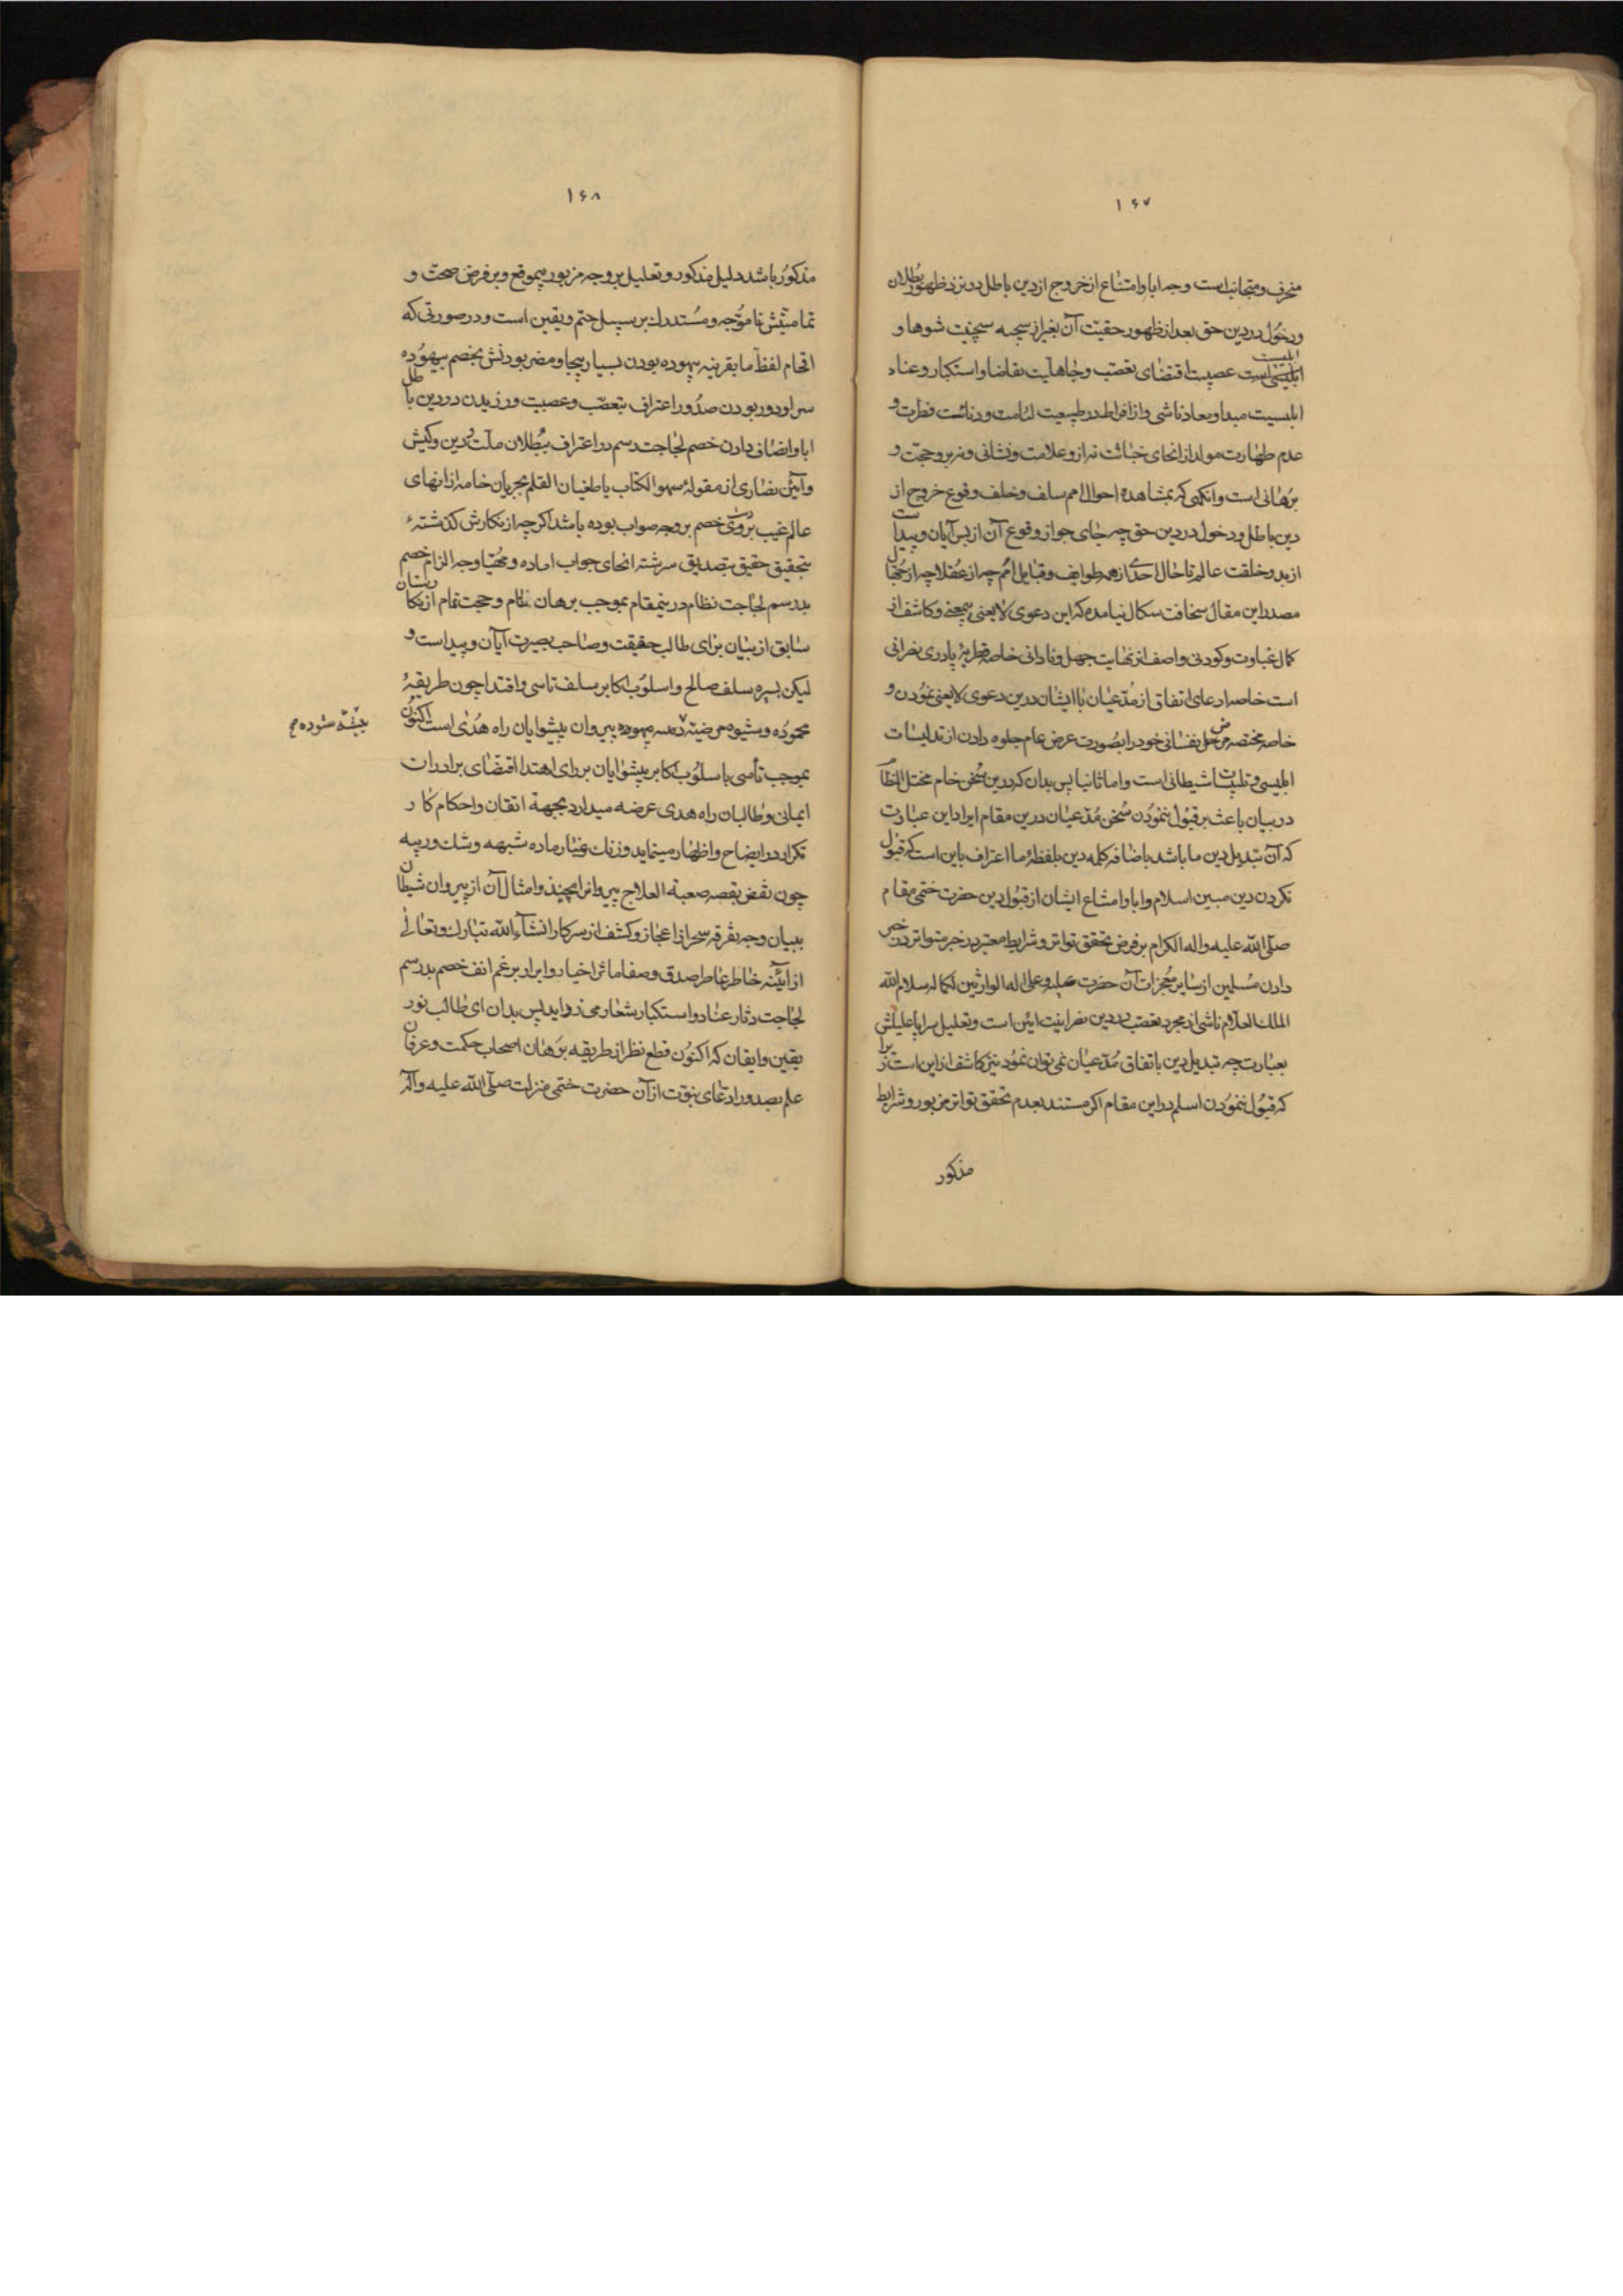 ۱۶۷
منحرف و متجانب است وجه ابا و امتناع از خروج از دین باطل در نزد ظهور بطلان
و دخول در دین حق بعد از ظهور حقیت آن بغیر از سجیه سجیت شوها و
ابلیسیت عصبیت اقتضای تعصب و جاهلیت تقاضا و استکبار و عناد
ابلیسیت مبدا و معاد ناشی و از افراط در طبیعت لئامت و دنائت فطرت و
عدم طهارت مولد از انحای خباثت نه از و علامت و نشانی و نه بر و حجت و
برهانی است و آنکهی که بمشاهده احوال امم سلف و خلف وقوع خروج از
دین باطل و دخول در دین حق چه جای جواز وقوع آن از بس آیان و پیداست
از بدو خلقت عالم تا حال احدی از همه طوایف و قبایل امم چه از عقلا چه از جهال
مصدر این مقال سخافت سکال نیامده که این دعوی لایعنی بیمعنی و کاشف از
کمال غباوت و کودنی و اصف از نهایت جهل و نادانی خاصه فطریهٔ پادری نصرانی
است خاصه ادعای اتفاق از مدعیان با ایشان درین دعوی لایعنی نمودن و
خاصه مختصه مرض جهل نفسانی خود را بصورت عرض عام جلوه دادن از تدلیسات
ابلیسی و تلبیسات شیطانی است و اما ثانیا پس بدان که درین سخن خام مختل النظام
در بیان باعث بر قبول ننمودن سخن مدعیان درین مقام ایراد این عبارت
که آن تبدیل دین ما باشد باضافه کلمه دین بلفظهٔ ما اعتراف باین است که قبول
نکردن دین مبین اسلام و ابا و امتناع ایشان از قبول دین حضرت ختمی مقام
صلی الله علیه و اله الکرام بر فرض تحقق تواتر و شرایط معتبر در خبر متواتر در خصوص
دادن مسلمین از سایر معجزات آن حضرت علیه و علی اله الوارثین لکماله سلام الله
الملک العلام ناشی از مجرد تعصب در دین نصرانیت ایین است و تعلیل سراپا علیلش
بعبارت چه تبدیل دین باتفاق مدعیان نمی توان نمود نیز کاشف از این است زیرا
که قبول ننمودن اسلم در این مقام اگر مستند بعدم تحقق تواتر مزبور و شرایط
مذکور
۱۶۸
مذکور باشد دلیل مذکور و تعلیل بر وجه مزبور بیموقع و بر فرض صحت و
تمامیتش ناموجه و مستدرک بر سبیل حتم و یقین است و در صورتی که
اقحام لفظ ما بقرینه بیهوده بودن بسیار بیجا و مضر بودنش بخصم بیهوده
سرا و دور بودن صدور اعتراف بتعصب و عصبیت ورزیدن در دین باطل
ابا و انصاف دادن خصم لجاجت رسم در اعتراف ببطلان ملت و دین و کیش
و آئین نصاری از مقولهٔ سهو الکتاب یا طغیان القلم بجریان خامه از انهای
عالم غیب بر وی خصم بر وجه صواب بوده باشد اگر چه از نگارش گذشتهٔ
بتحقیق حقیق بتصدیق سررشته انحای جواب اماده و مهیا وجه الزام خصم
بد رسم لجاجت نظام درینمقام بموجب برهان تام و حجت تمام از بکارستان
سابق از بیان برای طالب حقیقت و صاحب بصیرت آیان و پیداست و
لیکن بسیره سلف صالح و اسلوب اکابر سلف تاسی و اقتدا چون طریقهٔ
محموده و شیوه مرضیه بیهوده پیروان پیشوایان راه هدی است اکنون
بیّنه ستوده
بموجب تأسی باسلوب اکابر پیشوایان بر رای اهتدا اقتضای برادرات
ایمانی و طالبان راه هدی عرضه میدارد بجهة اتقان و احکام کار
تکرار در ایضاح و اظهار مینماید و زنک و غبار ماده شبهه و شک و ریبه
چون نقض بقصه صعبة العلاج پیروانرا بچیند و امثال آن از پیروان شیطان
ببیان وجه تفرقه سحر از اعجاز و کشف از سر کار انشاء الله تبارک و تعالی
از ائینه خاطر عاطر اصدق و صفا مائر اخیار و ابرار بر غم انف خصم بد رسم
لجاجت دثار عناد و استکبار شعار می زداید پس بدان ای طالب نور
یقین و ایقان که اکنون قطع نظر از طریقه برهان اصحاب حکمت و عرفان
علم بصدور ادعای نبوت از آن حضرت ختمی منزلت صلی الله علیه و آله